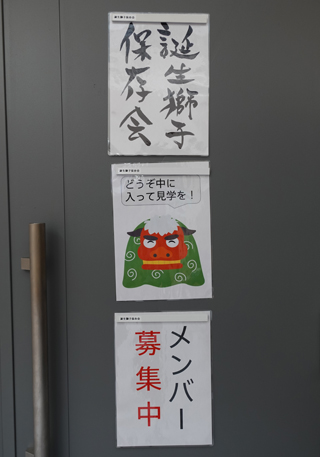 誕生獅子
保存会
どうぞ中に
入って見学を!
メンバー
募集中